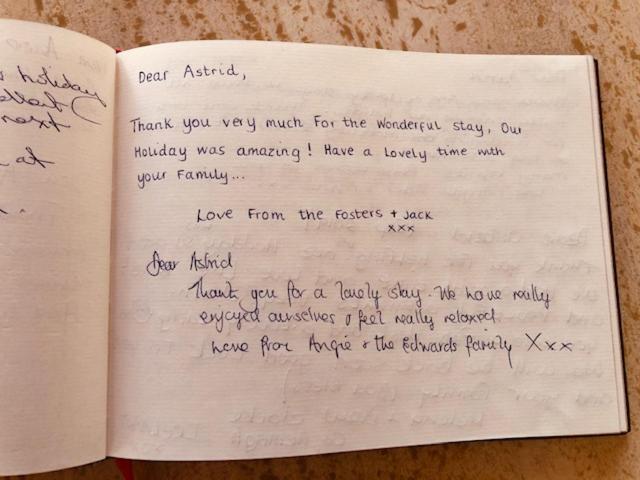 holiday
next
at
Dear Astrid,
Thank you very much For the wonderful stay, Our
Holiday was amazing! Have a Lovely time with
your Family...
Love From the Fosters + Jack
xxx
Dear Astrid
Thank you for a lovely stay. We have really
enjoyed ourselves & feel really relaxed.
Love from Angie & the Edwards family Xxx